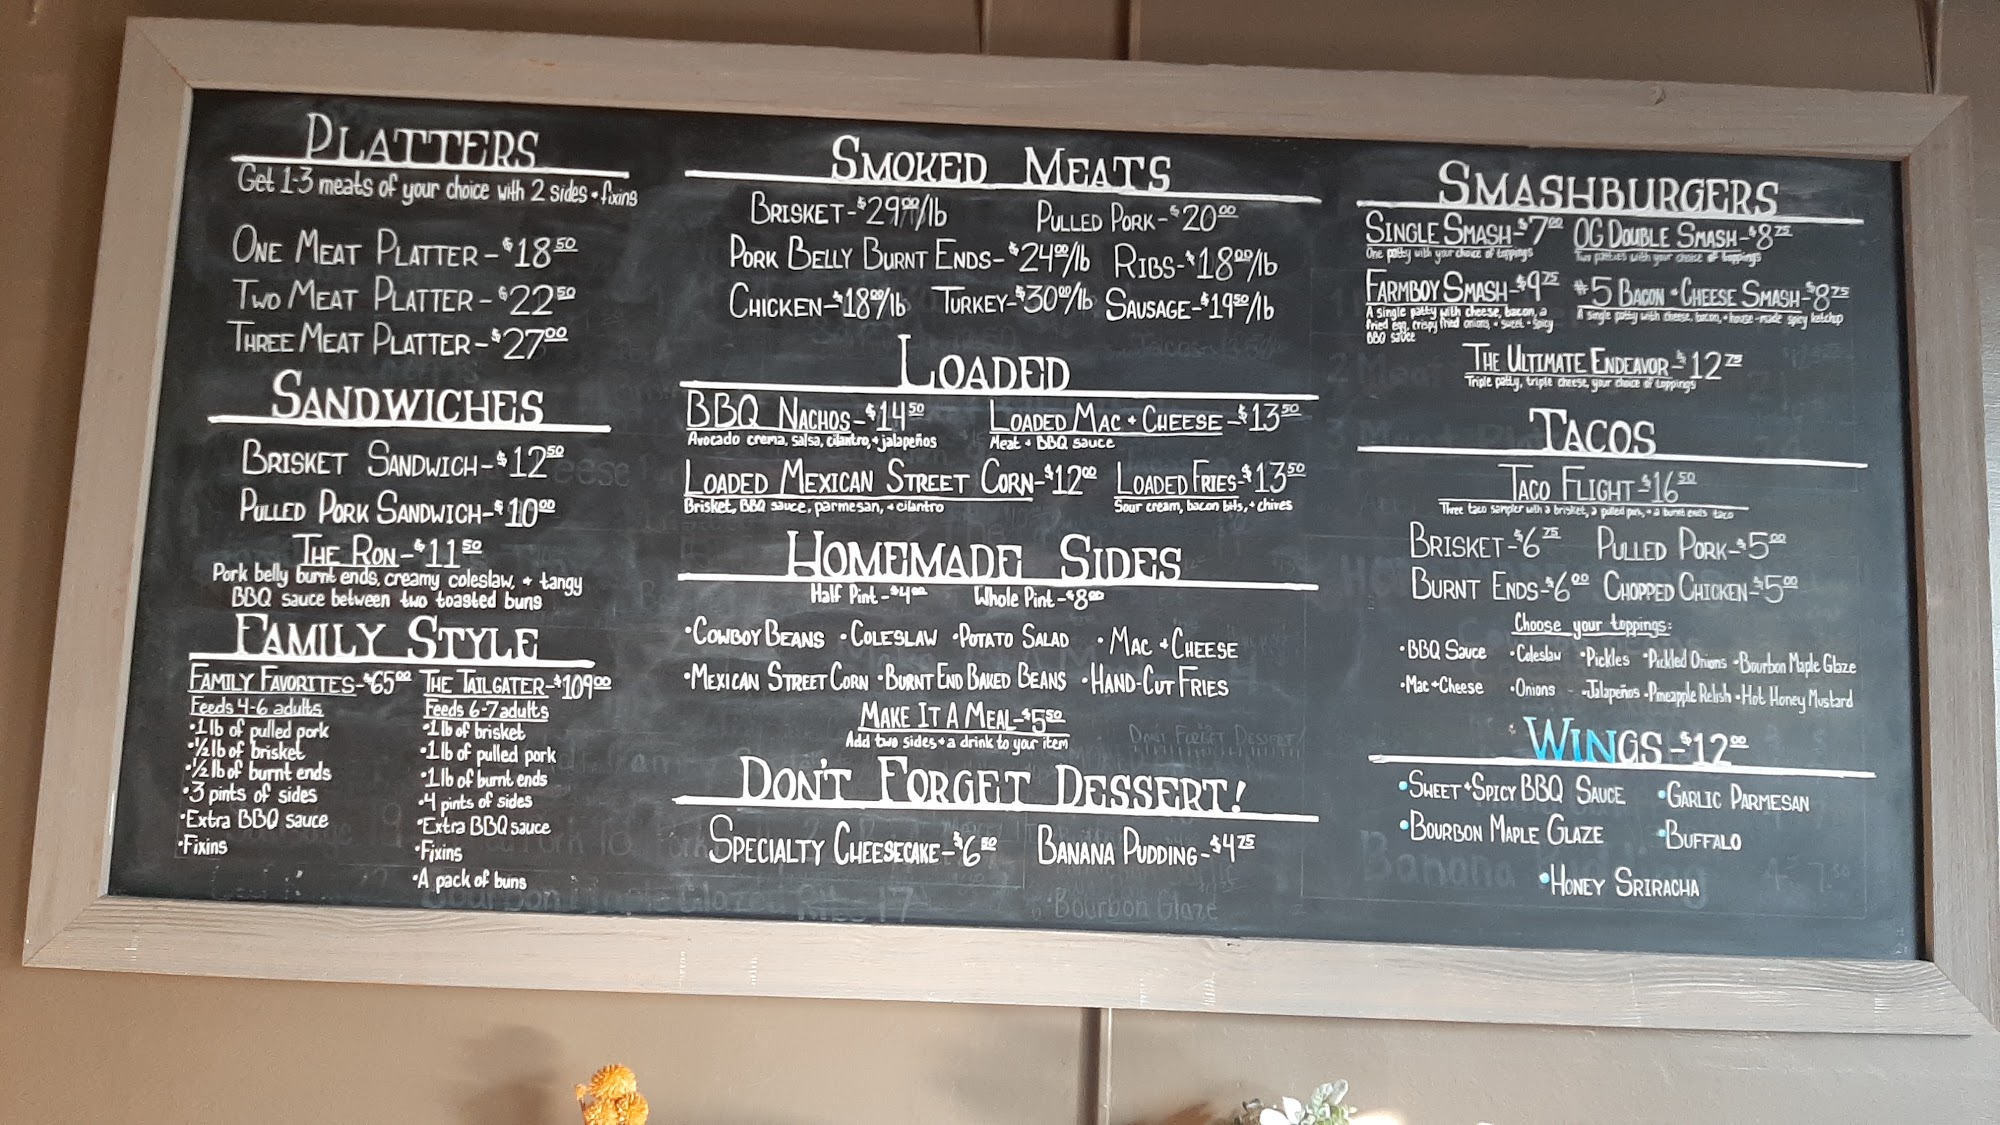 PLATTERS
Get 1-3 meats of your choice with 2 sides + fixins
ONE MEAT PLATTER - $18.50
TWO MEAT PLATTER - $22.50
THREE MEAT PLATTER - $27.00
SANDWICHES
BRISKET SANDWICH - $12.50
PULLED PORK SANDWICH - $10.00
THE RON - $11.50
Pork belly burnt ends, creamy coleslaw, + tangy
BBQ sauce between two toasted buns
FAMILY STYLE
FAMILY FAVORITES - $65.00
Feeds 4-6 adults
•1 lb of pulled pork
•½ lb of brisket
•½ lb of burnt ends
•3 pints of sides
•Extra BBQ sauce
•Fixins
THE TAILGATER - $109.00
Feeds 6-7 adults
•1 lb of brisket
•1 lb of pulled pork
•1 lb of burnt ends
•4 pints of sides
•Extra BBQ sauce
•Fixins
•A pack of buns
SMOKED MEATS
BRISKET - $29.00/lb PULLED PORK - $20.00
PORK BELLY BURNT ENDS - $24.00/lb RIBS - $18.00/lb
CHICKEN - $18.00/lb TURKEY - $30.00/lb SAUSAGE - $19.50/lb
LOADED
BBQ NACHOS - $14.50 LOADED MAC + CHEESE - $13.50
Avocado crema, salsa, cilantro, + jalapeños Meat + BBQ sauce
LOADED MEXICAN STREET CORN - $12.00 LOADED FRIES - $13.50
Brisket, BBQ sauce, parmesan, + cilantro Sour cream, bacon bits, + chives
HOMEMADE SIDES
Half Pint - $4.00 Whole Pint - $8.00
•COWBOY BEANS •COLESLAW •POTATO SALAD •MAC + CHEESE
•MEXICAN STREET CORN •BURNT END BAKED BEANS •HAND-CUT FRIES
MAKE IT A MEAL - $5.50
Add two sides + a drink to your item
DON'T FORGET DESSERT!
SPECIALTY CHEESECAKE - $6.50 BANANA PUDDING - $4.75
•Bourbon Glaze
SMASHBURGERS
SINGLE SMASH - $7.00 OG DOUBLE SMASH - $8.75
One patty with your choice of toppings Two patties with your choice of toppings
FARMBOY SMASH - $9.75 #5 BACON + CHEESE SMASH - $8.75
A single patty with cheese, bacon, a A single patty with cheese, bacon, + house-made spicy ketchup
fried egg, crispy fried onions, + sweet + spicy
BBQ sauce
THE ULTIMATE ENDEAVOR - $12.75
Triple patty, triple cheese, your choice of toppings
TACOS
TACO FLIGHT - $16.50
Three taco sampler with a brisket, a pulled pork, + a burnt ends taco
BRISKET - $6.75 PULLED PORK - $5.00
BURNT ENDS - $6.00 CHOPPED CHICKEN - $5.00
Choose your toppings:
•BBQ Sauce •Coleslaw •Pickles •Pickled Onions •Bourbon Maple Glaze
•Mac + Cheese •Onions •Jalapeños •Pineapple Relish •Hot Honey Mustard
WINGS - $12.00
•SWEET + SPICY BBQ SAUCE •GARLIC PARMESAN
•BOURBON MAPLE GLAZE •BUFFALO
•HONEY SRIRACHA